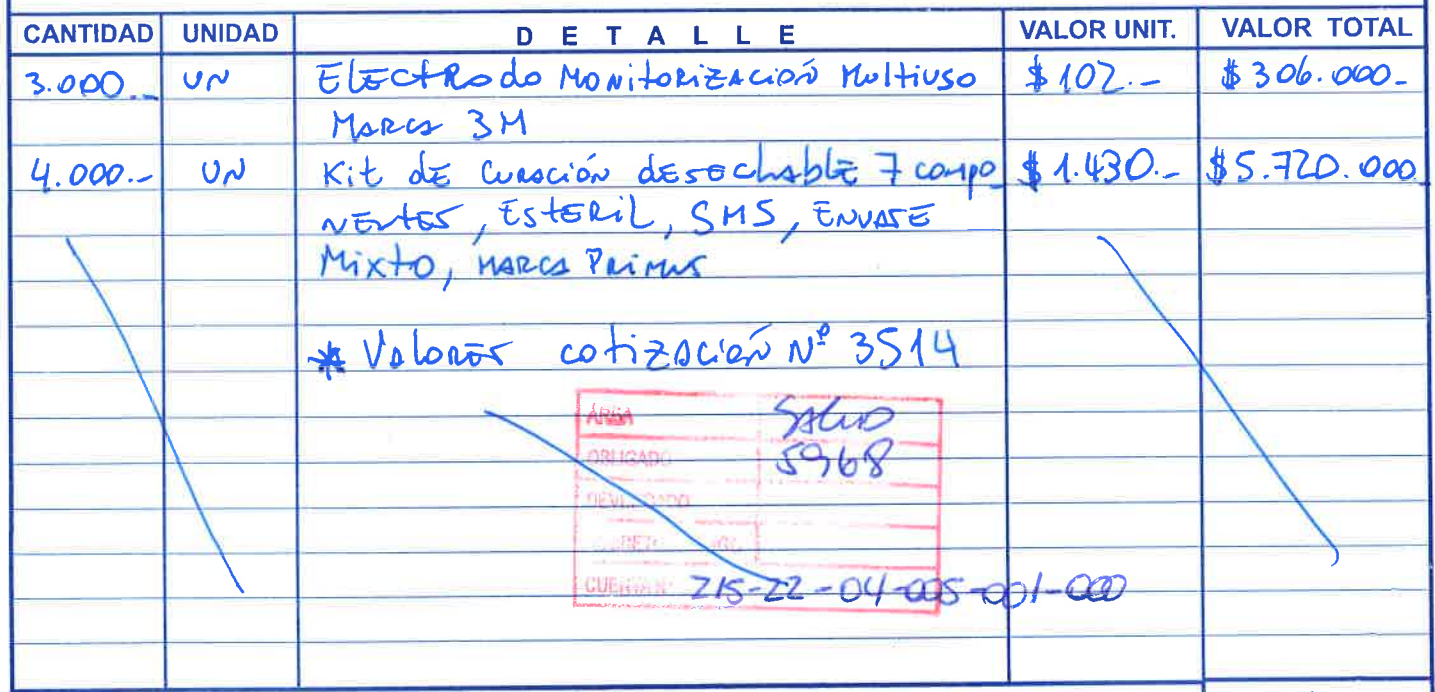 CANTIDAD UNIDAD DETALLE VALOR UNIT. VALOR TOTAL
3.000.- UN Electrodo Monitorización Multiuso $102.- $306.000-
Marca 3M
4.000.- UN Kit de Curación desechable 7 compo $1.430.- $5.720.000
nentes, Esteril, SMS, Envase
Mixto, Marca Primus
* Valores cotización Nº 3514
ÁREA SALUD
OBLIGADO 5968
CUENTA Nº 215-22-04-005-001-000